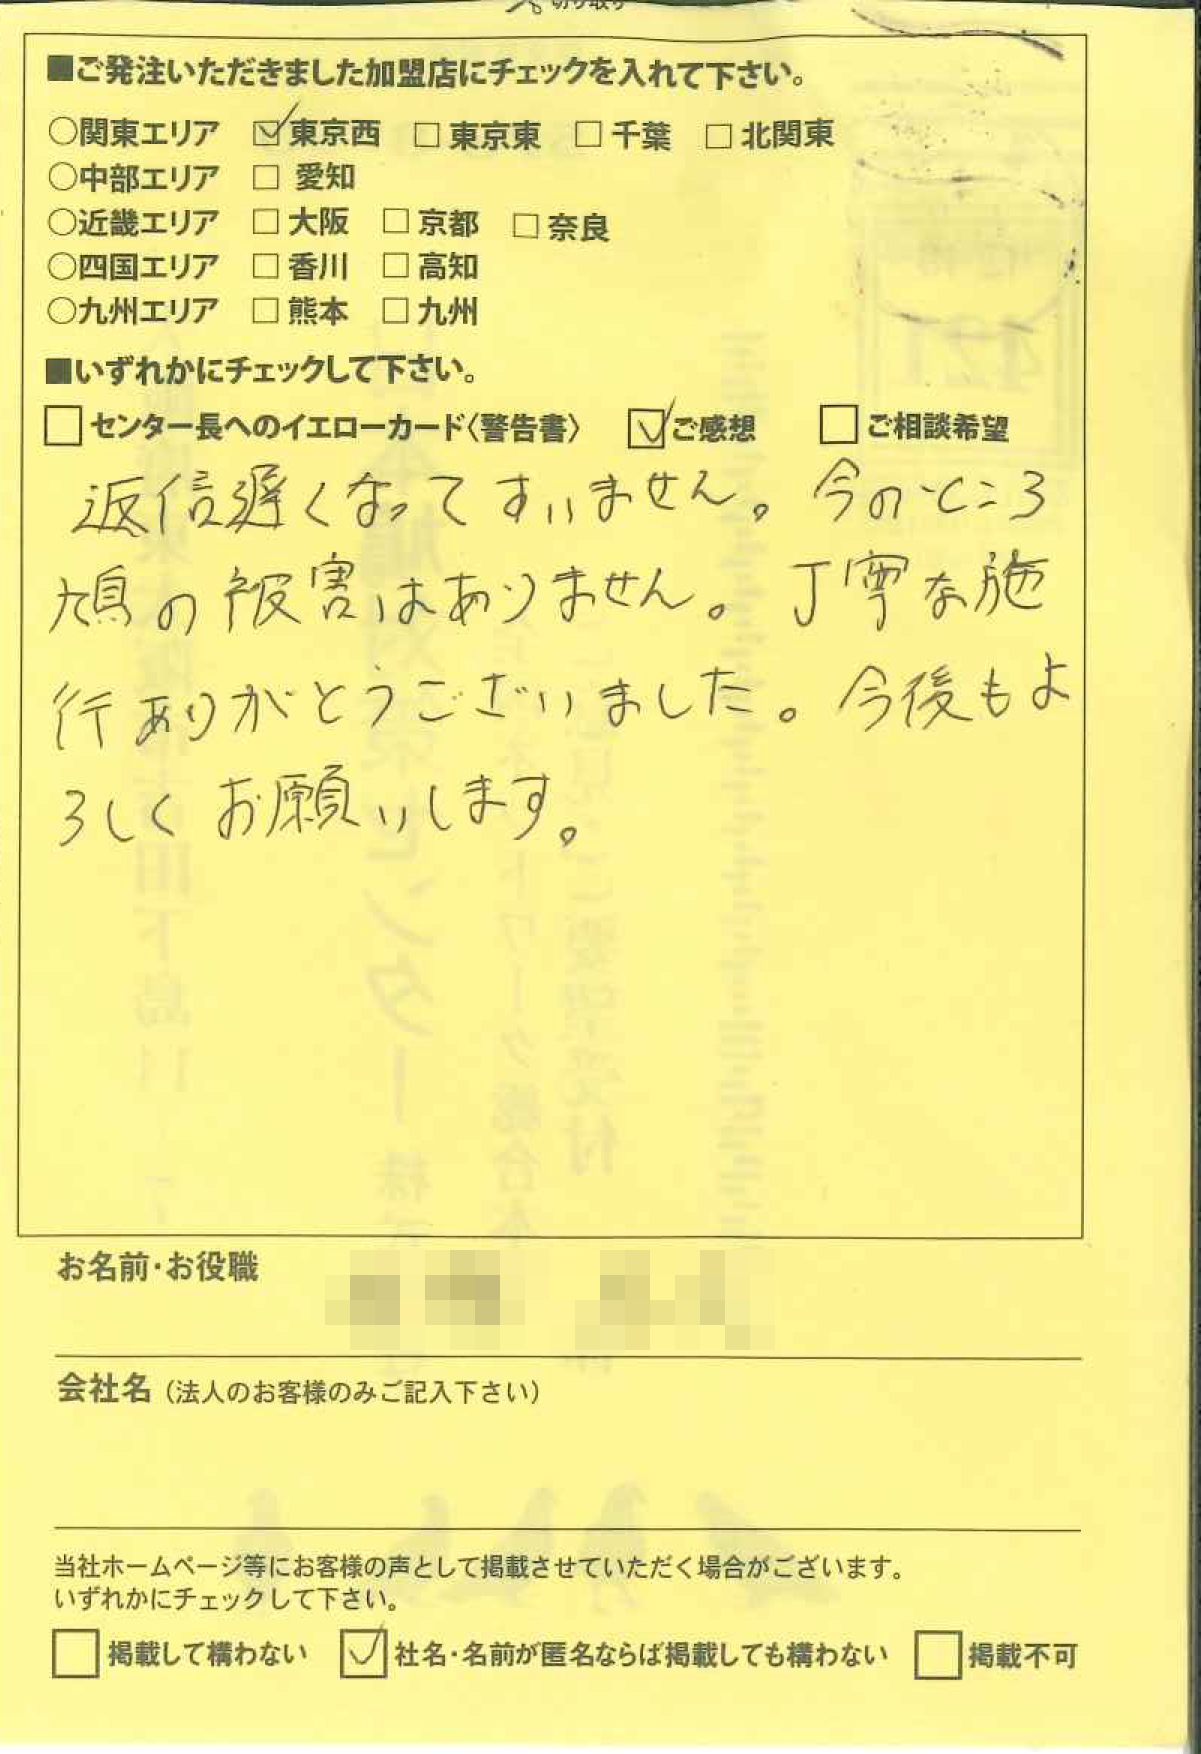 切り取り
■ご発注いただきました加盟店にチェックを入れて下さい。
○関東エリア ☑東京西 □東京東 □千葉 □北関東
○中部エリア □愛知
○近畿エリア □大阪 □京都 □奈良
○四国エリア □香川 □高知
○九州エリア □熊本 □九州
■いずれかにチェックして下さい。
□センター長へのイエローカード〈警告書〉 ☑ご感想 □ご相談希望
返信遅くなってすいません。今のところ
鳩の被害はありません。丁寧な施
行ありがとうございました。今後もよ
ろしくお願いします。
お名前・お役職
会社名（法人のお客様のみご記入下さい）
当社ホームページ等にお客様の声として掲載させていただく場合がございます。
いずれかにチェックして下さい。
□掲載して構わない ☑社名・名前が匿名ならば掲載しても構わない □掲載不可